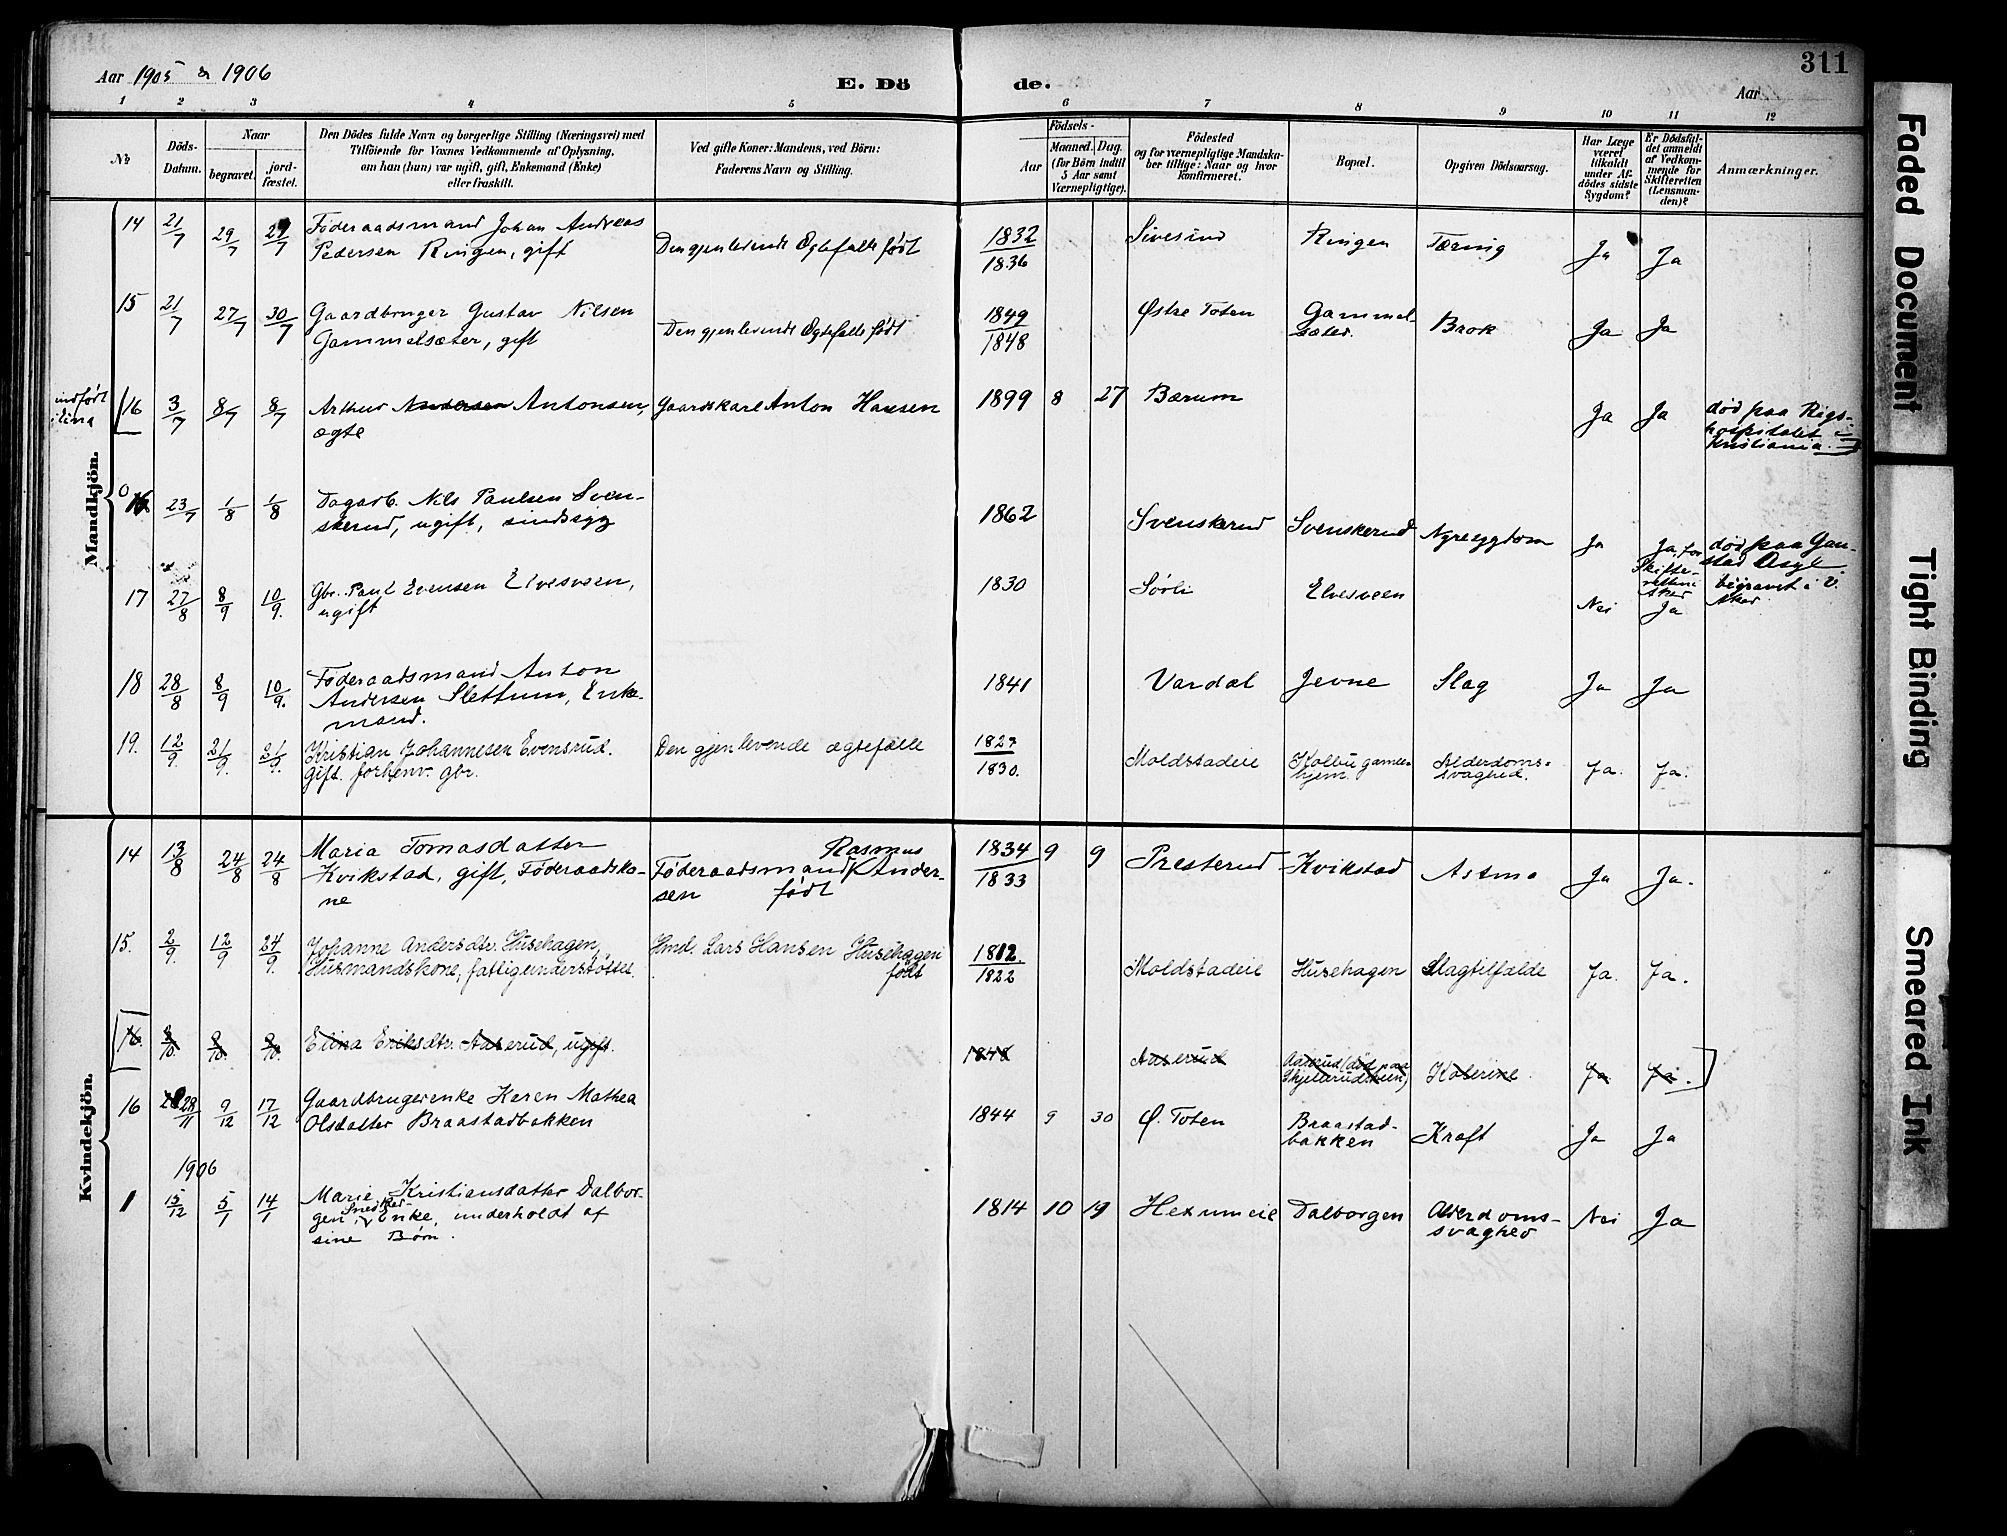 Aar 1905 & 1906
E. Dö
de.
Aar
311
1 2 3 4 5 6 7 8 9 10 11 12
No
Döds-
Datum.
Naar
begravet.
jord-
fæstet.
Den Dödes fulde Navn og borgerlige Stilling (Næringsvei) med
Tilföiende for Voxnes Vedkommende af Oplysning,
om han (hun) var ugift, gift, Enkemand (Enke)
eller fraskilt.
Ved gifte Koner: Mandens, ved Börn:
Faderens Navn og Stilling.
Aar
Födsels-
Maaned. Dag.
(for Börn indtil
5 Aar samt
Værnepligtige).
Födested
og for værnepligtige Mandska-
ber tillige: Naar og hvor
konfirmeret.
Bopæl.
Opgiven Dödsaarsag.
Har Læge
været
tilkaldt
under Af-
dödes sidste
Sygdom?
Er Dödsfal-
det anmeldt
af Vedkom-
mende for
Skifteretten
(Lensman-
den)?
Anmærkninger.
Mandkjön.
14 21/7 29/7 29/7 Föderaadsmand Johan Andreas
Pedersen Ringen, gift
Den gjenlevende Egtefælle født
1832
1836
Sivesind Ringen Tæring Ja Ja
15 21/7 27/7 30/7 Gaardbruger Gustav Nilsen
Gammelsæter, gift
Den gjenlevende Egtefælle født
1849
1848
Østre Toten Gammel-
sæter.
Brok Ja Ja
indført
16 3/7 8/7 8/7 Arthur Andersen Antonsen,
ægte
Gaardskarl Anton Hansen
1899 8 27 Bærum Ja Ja
død paa Rigs-
hospitalet i
Kristiania.
16 23/7 1/8 1/8 Dagarb. Nils Paulsen Sven-
skerud, ugift, sindssyg
1862 Svenskerud Svenskerud Nyresygdom Ja Ja, for
Skifte-
retten i
Aker
død paa Gau-
stad Asyl
begravet i V.
Aker
17 27/8 8/9 10/9. Gbr. Paul Evensen Elvesveen,
ugift
1830 Sørli Elvesveen Nei Ja
18 28/8 8/9 10/9. Föderaadsmand Anton
Andersen Slettum, Enke-
mand.
1841 Vardal Jevne Slag Ja Ja
19. 12/9. 21/9. 21/9. Kristian Johannesen Evensrud.
gift. forhenv. gbr.
Den gjenlevende ægtefælle
1827
1830.
Moldstadeie Kolbu gamle-
hjem.
Alderdoms-
svaghed.
Ja. Ja.
Kvindekjön.
14 13/8 24/8 24/8 Maria Tomasdatter
Kvikstad, gift, Föderaadsko-
ne
Rasmus
Föderaadsmand Ander-
sen født
1834 9 9
1833
Presterud Kvikstad Astma Ja Ja.
15. 2/9. 12/9 24/9. Johanne Andersdtr. Husehagen,
Husmandskone, fattigunderstøttet.
Hmd. Lars Hansen Husehagen
født
1812
1822
Moldstadeie Husehagen Slagtilfælde Ja. Ja.
16. 8/10. 9/10. 9/10. Elina Eriksdtr. Aaserud, ugift.
1848 Aaserud Aaserud (død paa
Skjelbrudsveen)
Kolerine. Ja Ja.
16 28/11 9/12 17/12 Gaardbrugerenke Karen Mathea
Olsdatter Braastadbakken
1844 9 30 Ø. Toten Braastad-
bakken
Kræft Ja Ja
1906
1 15/12 5/1 14/1 Marie Kristiansdatter Dalbor-
gen, Snedker-
enke, underholdt af
sine Børn.
1814 10 19 Hexumeie Dalborgen Alderdoms-
svaghed
Nei Ja
Faded Document
Tight Binding
Smeared Ink